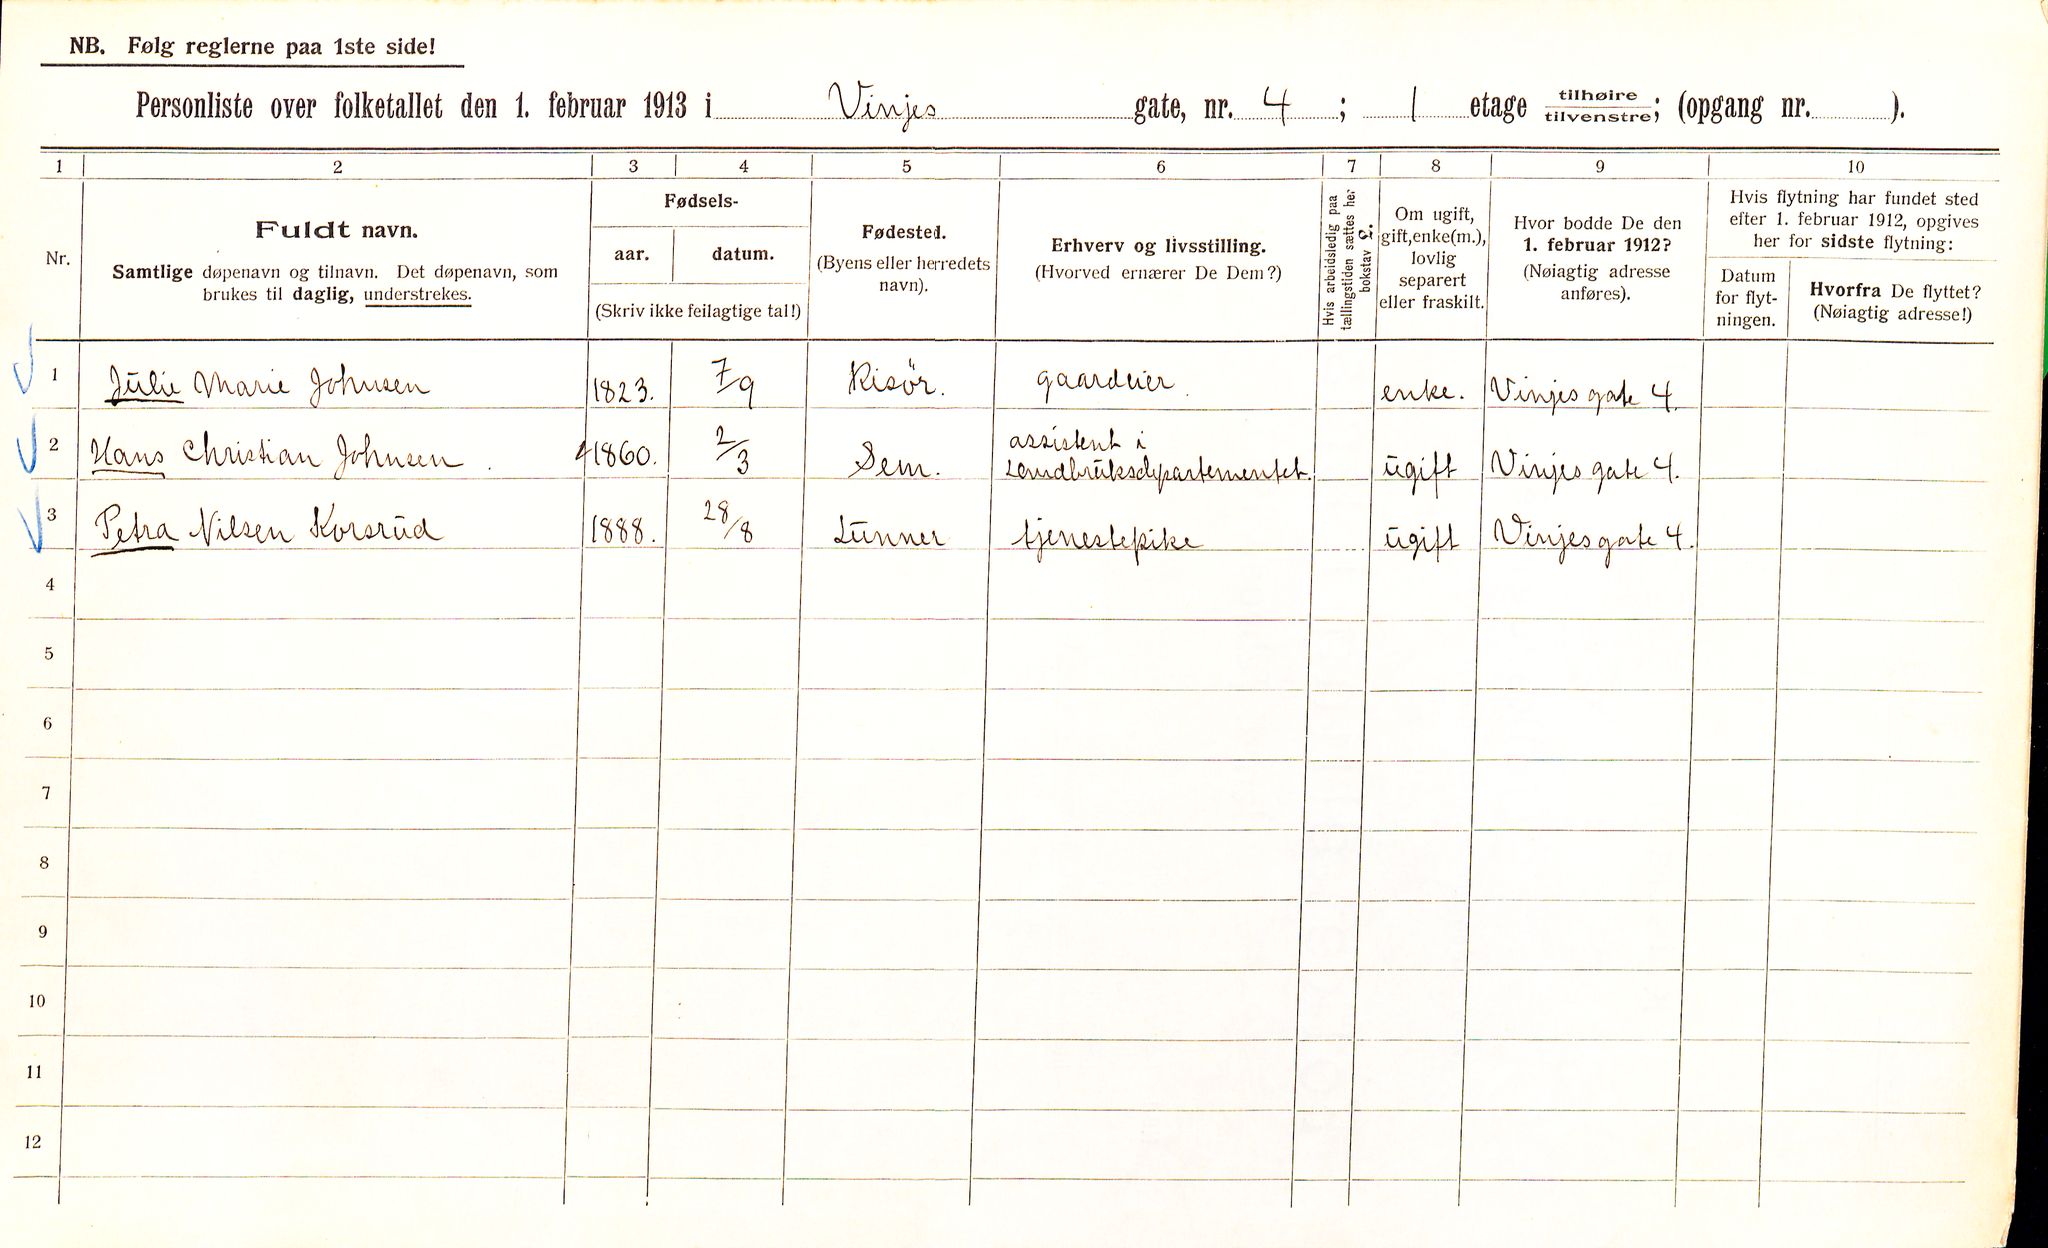 NB. Følg reglerne paa 1ste side!
Personliste over folketallet den 1. februar 1913 i Vinjes gate, nr. 4 ; 1 etage tilhøire tilvenstre; (opgang nr. ).
1 2 3 4 5 6 7 8 9 10
Nr.
Fuldt navn.
Samtlige døpenavn og tilnavn. Det døpenavn, som
brukes til daglig, understrekes.
Fødsels-
aar. datum.
(Skriv ikke feilagtige tal!)
Fødested.
(Byens eller herredets
navn).
Erhverv og livsstilling.
(Hvorved ernærer De Dem?)
Hvis arbeidsledig paa
tællingstiden sættes her
bokstav
Om ugift,
gift, enke(m.),
lovlig
separert
eller fraskilt.
Hvor bodde De den
1. februar 1912?
(Nøiagtig adresse
anføres).
Hvis flytning har fundet sted
efter 1. februar 1912, opgives
her for sidste flytning:
Datum
for flyt-
ningen.
Hvorfra De flyttet?
(Nøiagtig adresse!)
1 Julie Marie Johnsen 1823. 7/9 Risör. gaardeier enke. Vinjes gate 4.
2 Hans Christian Johnsen 1860. 2/3 Sem. assistent i
Landbruksdepartementet. ugift Vinjes gate 4.
3 Petra Nilsen Korsrud 1888. 28/8 Lunner tjenestepike ugift Vinjes gate 4.
4
5
6
7
8
9
10
11
12